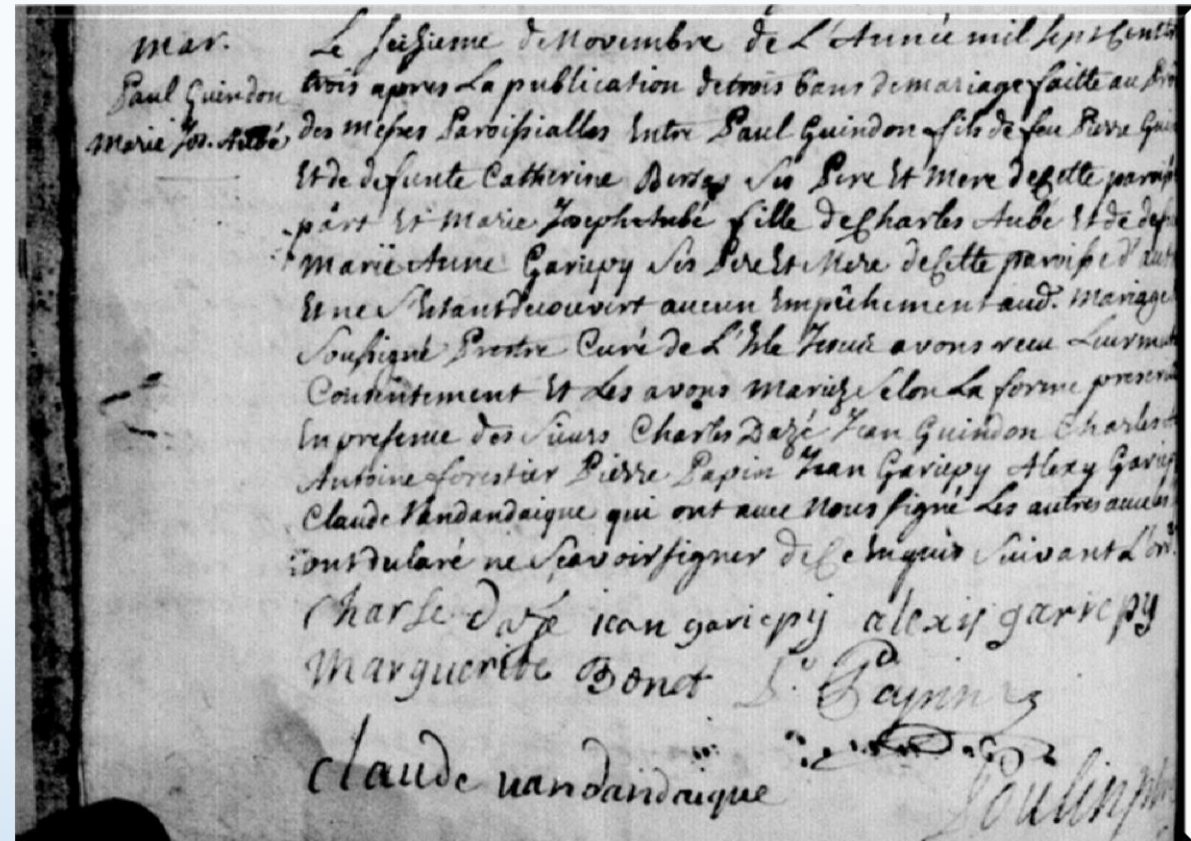 mar.
Paul Guindon
Marie Jos. Aubé
Le seisieme de Novembre de L'Année mil sept Cent
trois apres La publication de trois bans de mariage faitte au
des messes Paroissialles Entre Paul Guindon fils de feu Pierre Gui
Et de defunte Catherine Ses Pere Et Mere de Cette paroi
part Et Marie Joseph Aubé fille de Charles Aubé Et de def
Marie Anne Gariepy Ses Pere Et Mere de Cette paroisse d'aut
Et ne S'Etant decouvert aucun Empêchement aud. Mariage
Soussigné Prestre Curé de L'Isle Jesus avons receu Leur mut
Consentement Et Les avons Mariez Selon La forme prescri
En presence des Sieurs Charles Dazé Jean Guindon Charles
Antoine forestier Pierre Papin Jean Gariepy Alexy Gariep
Claude Vandandaigue qui ont avec Nous signé Les autres
ont declaré ne Scavoir signer de Ce Enquis Suivant L'or
Charle daze jean gariepy alexis gariepy
Marguerite Bonet P. Papin
claude vandandaigue
Poulin ptre